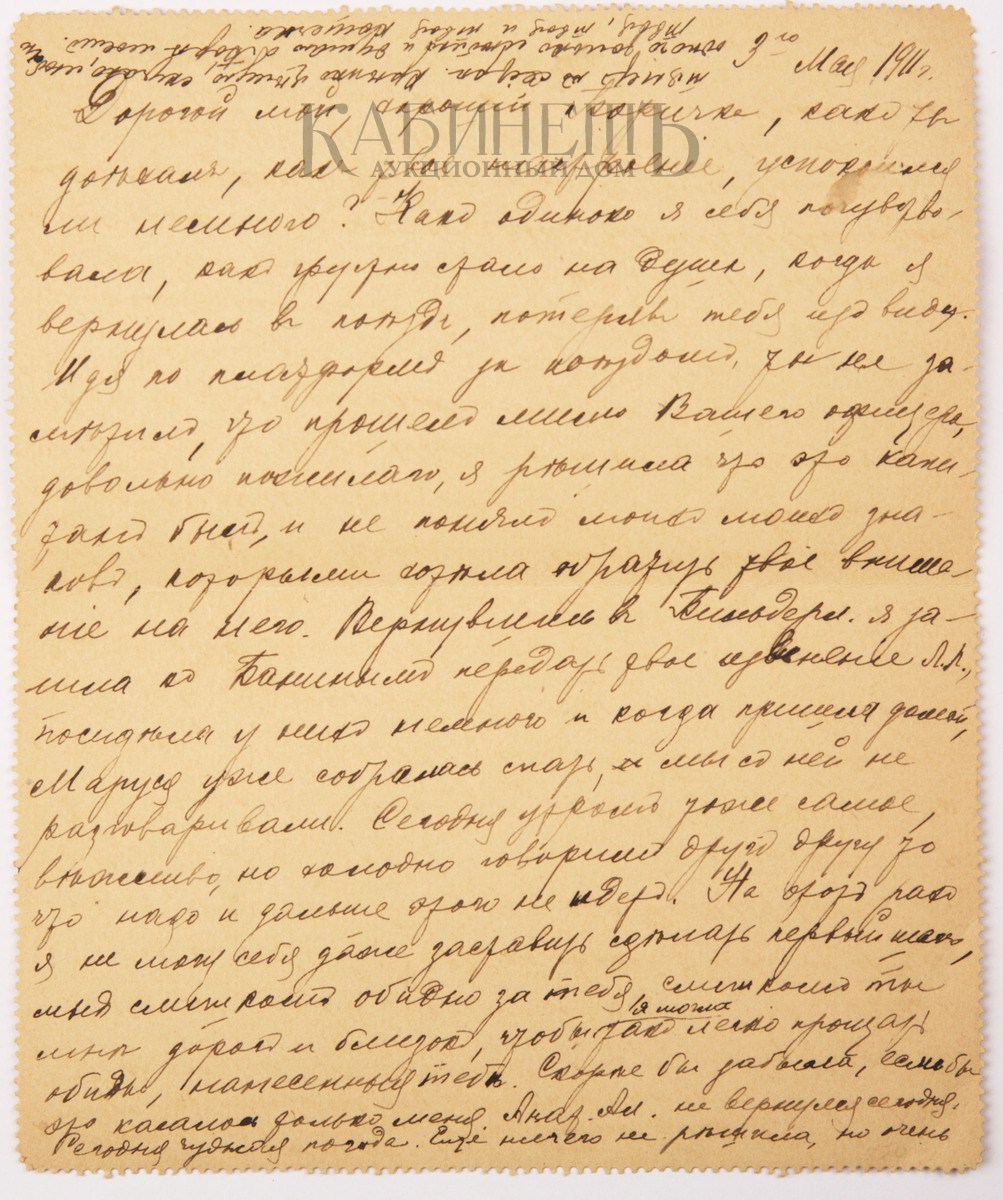 5го Мая 1911 г.
КАБИНЕТЪ
АУКЦИОННЫЙ ДОМ
Дорогой мой, хороший, какъ ты
доѣхалъ, как твое настроеніе, успокоился
ли немного? Какъ одиноко я себя почувство-
вала, какъ грустно стало на душѣ, когда я
вернулась въ поѣздъ, потерявъ тебя изъ виду.
Идя по платформѣ за поѣздомъ, ты не за-
мѣтилъ, что прошелъ мимо Вашего офицера,
довольно пожилого, я рѣшила что это капи-
танъ былъ, и не понялъ моихъ моихъ зна-
ковъ, которыми хотѣла обратить твое внима-
ніе на него. Вернувшись въ Бильдерл. я за-
шла къ Баниннымъ передать твое извиненіе Л.Л.,
посидѣла у нихъ немного и когда пришла домой,
Маруся уже собралась спать, и мы съ ней не
разговаривали. Сегодня утромъ тоже самое,
вѣжливо, но холодно говоримъ другъ другу то
что надо и дальше этого не идетъ. На этотъ разъ
я не могу себя даже заставить сдѣлать первый шагъ,
мнѣ слишкомъ обидно за тебя, слишкомъ ты
мнѣ дорогъ и близокъ, чтобы я могла такъ легко прощать
обиды, нанесенныя тебѣ. Скорѣе бы забыла, если бы
это касалось только меня. Анат. Ал. не вернулся сегодня.
Сегодня чудная погода. Еще ничего не рѣшила, но очень